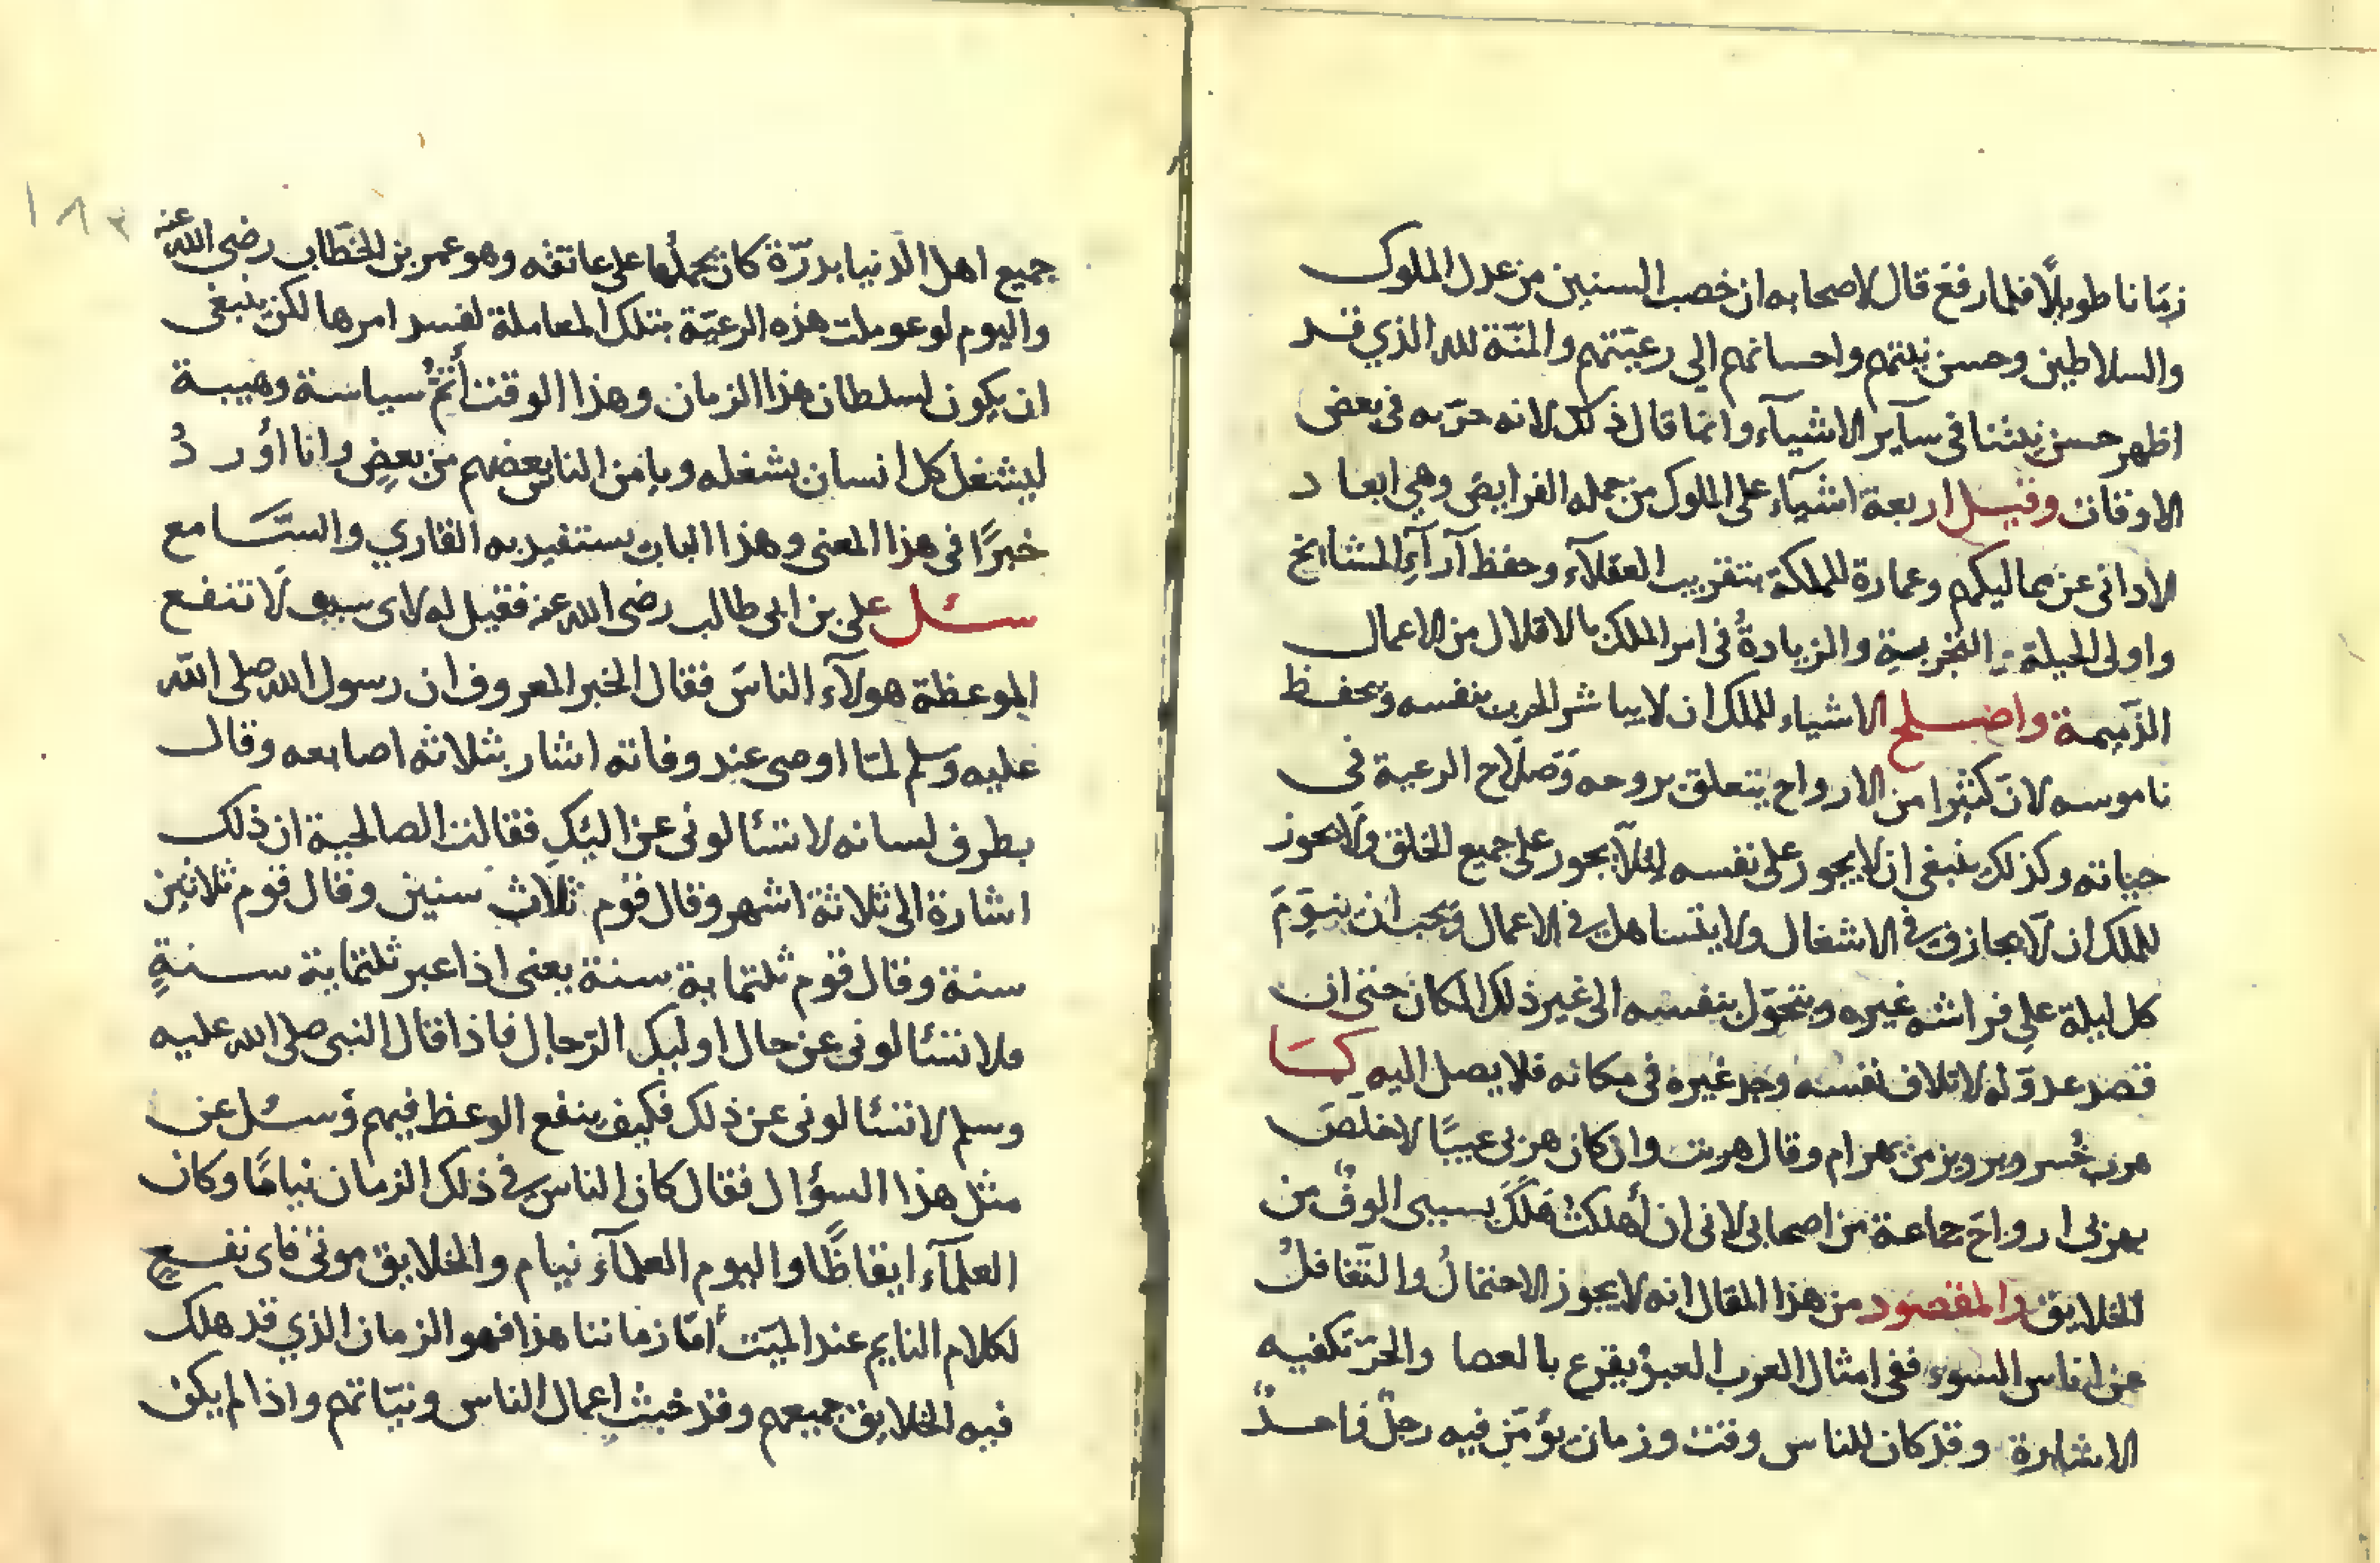 زمانا طويلًا فلما رفع قال لاصحابه ان خصب السنين من عدل الملوك
والسلاطين وحسن نيتهم واحسانهم الى رعيّتهم والمنّة لله الذي قد
اظهر حسن نيتنا في ساير الاشيآء وانما قال ذلك لانه جرّبه في بعض
الاوقات وقيل اربعة اشيآء على الملوك من جمله الفرايض وهي ابعاد
الادانى عن مماليكهم وعمارة المملكة بتقريب العقلآء وحفظ آرآء المشايخ
واولى الحيلة والتجربية والزيادةُ في امر الملك بالاقلال من الاعمال
الذّميمة واصلح الاشياء للملك ان لا يباشر الحرب بنفسه ويحفظ
ناموسه لانّ كثيرا من الارواح يتعلق بروحه وصَلاح الرعية في
حياته وكذلك ينبغى ان لا يجور على نفسه لئلّا يجور على جميع الخلق ولا يجوز
للملك ان لا يجازف في الاشغال ولا يتساهل في الاعمال ويجب ان ينوّمَ
كل ليلة على فراشه غيره ويتحوّل بنفسه الى غير ذلك المكان حتى ان
قصد عدوّ له لاتلاف نفسه وجد غيره في مكانه فلا يصل اليه كمَا
هرب خُسرو برويز من بهرام وقال هربت وان كان هربى عيبًا لاخلّصَ
بهربى ارواحَ جماعة من اصحابى لانى ان أُهلكتُ هَلَكَ بسببى الوفٌ من
الخلايق والمقصود من هذا المقال انه لا يجوز الاحتمالُ والتّغافلُ
عن اناس السوء ففى امثال العرب العبدُ يقرع بالعصا والحرّ تكفيه
الاشارة وقد كان للناس وقت وزمان يؤمّن فيه رجلٌ واحدٌ
١٨٢
جميع اهل الدنيا بدرّة كان يحملُها على عاتقه وهو عمر بن الخطّاب رضى الله عنه
واليوم لو عوملت هذه الرعيّة بتلك المعاملة لفسد امرها لكن ينبغى
ان يكون لسلطان هذا الزمان وهذا الوقت أتمُّ سياسة وهيبة
ليشغل كل انسان بشغله ويامن الناس بعضهم من بعضٍ وانا اُوردُ
خبرًا في هذا المعنى وهذا الباب يستفيد به القاري والسَّامع
سئل على بن ابى طالب رضى الله عنه فقيل له لاى سبب لا تنفع
الموعظة هولآء الناسَ فقال الخبر المعروف ان رسول الله صلى الله
عليه وسلم لمّا اوصى عند وفاته اشار بثلاثه اصابعه وقال
بطرف لسانه لا تسئالونى عن اليُك فقالت الصالحية ان ذلك
اشارة الى ثلاثة اشهر وقال قوم ثلاث سنين وقال قوم ثلاثين
سنة وقال قوم ثلثماية سنة يعنى اذا عبر ثلثماية سنةٍ
فلا تسئالونى عن حال اوليك الرّجال فاذا قال النبى صلى الله عليه
وسلم لا تسئالونى عن ذلك فكيف ينفع الوعظ فيهم وَسئل عن
مثل هذا السؤال فقال كان الناس في ذلك الزمان نيامًا وكان
العلمآء ايقاظًا واليوم العلمآء نيام والخلايق موتى فاى نفعٍ
لكلام النايم عند الميّت أمّا زماننا هذا فهو الزمان الذي قد هلك
فيه الخلايق جميعهم وقد خبثت اعمال الناس ونيّاتهم واذا لم يكن